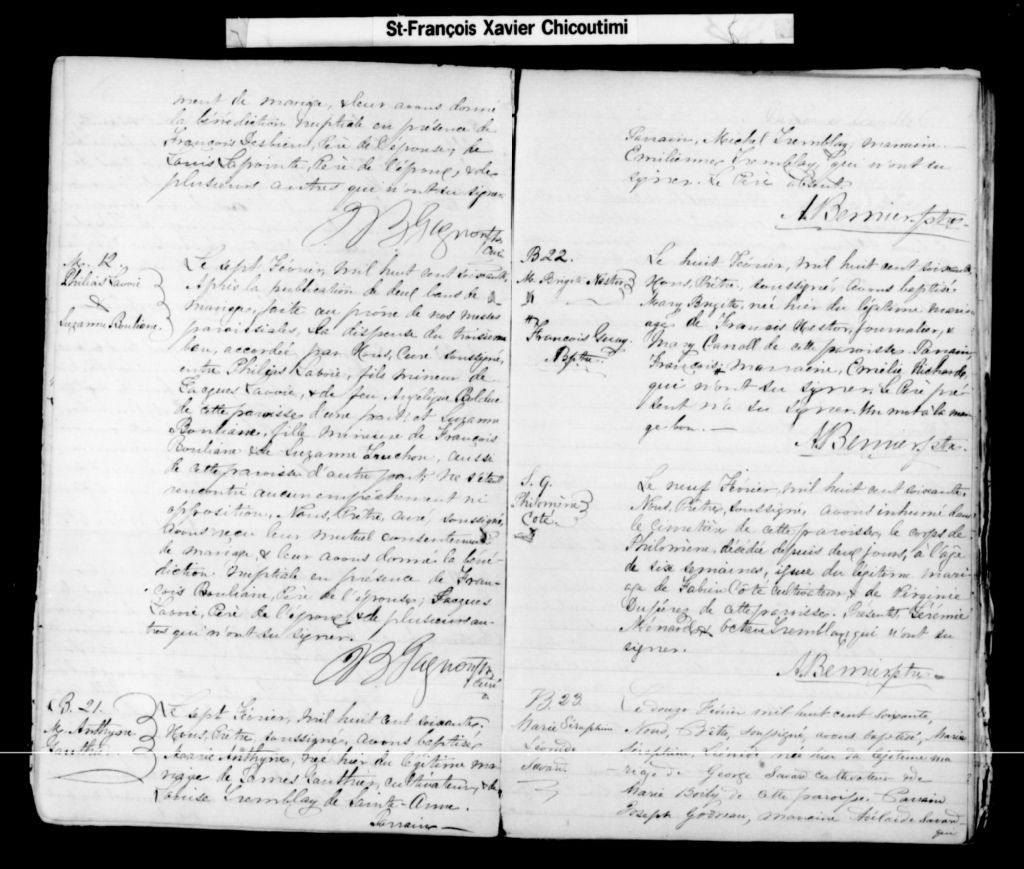 St-François Xavier Chicoutimi
ment de mariage, & leur avons donné
la bénédiction nuptiale en présence de
François Desbiens, Père de l'épouse, de
Louis Lapointe, Père de l'époux, & de
plusieurs autres qui n'ont su signer.
Gagnon Ptre
Curé
M. 12.
Philias Lavoie
&
Suzanne Bouliane.
Le sept, Février, mil huit cent soixante
Après la publication de deux bans de
mariage, faite au prône de nos messes
paroissiales, la dispense du troisième
ban, accordée par Nous, Curé soussigné,
entre Philias Lavoie, fils mineur de
Jacques Lavoie, & de feu Angélique
de cette paroisse d'une part; et Suzanne
Bouliane, fille mineure de François
Bouliane & de Suzanne Fauchon, aussi
de cette paroisse d'autre part; ne s'étant
rencontré aucun empêchement ni
opposition, Nous, Prêtre, curé, soussigné,
avons reçu leur mutuel consentement
de mariage & leur avons donné la béné-
diction nuptiale en présence de Fran-
çois Bouliane, Père de l'épouse; Jacques
Lavoie, Père de l'époux, & de plusieurs au-
tres qui n'ont su signer.
Gagnon Ptre
Curé
B. 21.
M. Anthyme
Gauthier
Le sept Février, mil huit cent soixante,
Nous, Prêtre, soussigné, avons baptisé
Marie Anthyme, née hier du légitime ma-
riage de James Gauthier, cultivateur, & de
Louise Tremblay de Sainte-Anne.
Parrain
Parrain, Michel Tremblay, marraine
Emilienne Tremblay, qui n'ont su
signer. Le Père absent.
A. Bernier ptre
B 22.
M. Brigitte Nestor
François Guay
Bptre.
Le huit Février, mil huit cent soixante,
Nous, Prêtre, soussigné avons baptisé
Mary Brigitte, née hier du légitime mari-
age de Francis Nestor, journalier, &
Mary Carroll de cette paroisse. Parrain,
François marraine, Emélie Richard,
qui n'ont su signer. Le Père pré-
sent n'a su signer. Un mot à la mar-
ge bon.
A. Bernier ptre
S. 9.
Philomène
Côté.
Le neuf Février, mil huit cent soixante,
Nous, Prêtre, soussigné, avons inhumé dans
le cimetière de cette paroisse, le corps de
Philomène, décédée depuis deux jours, à l'âge
de six semaines, issue du légitime mari-
age de Fabien Côté cultivateur & de Virginie
de cette paroisse. Présents, Jérémie
Ménard & Octave Tremblay, qui n'ont su
signer.
A. Bernier ptre
B 23.
Marie Séraphine
Léonide
Savard.
Le douze Février mil huit cent soixante,
Nous, Prêtre, soussigné, avons baptisé, Marie
Séraphine, Léonide née hier du légitime ma
riage de George Savard cultivateur & de
Marie Boily de cette paroisse. Parrain
Joseph marraine Adélaïde Savard
qui